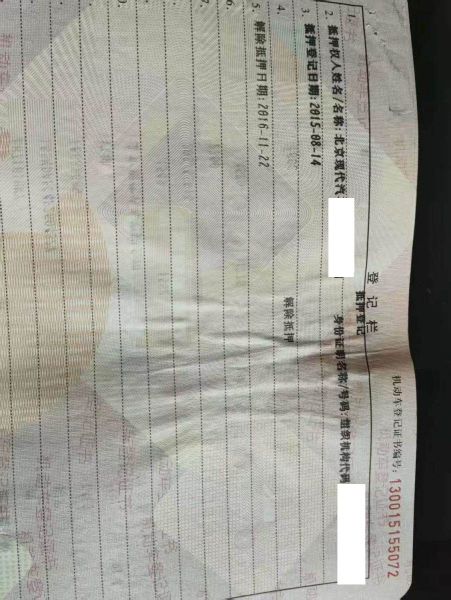 机动车登记证书编号：130015155072
登记栏
1. 抵押登记
2. 抵押权人姓名/名称：北京现代汽 身份证明名称/号码：组织机构代码
3. 抵押登记日期：2015-08-14
4. 解除抵押
5. 解除抵押日期：2016-11-22
6.
7.